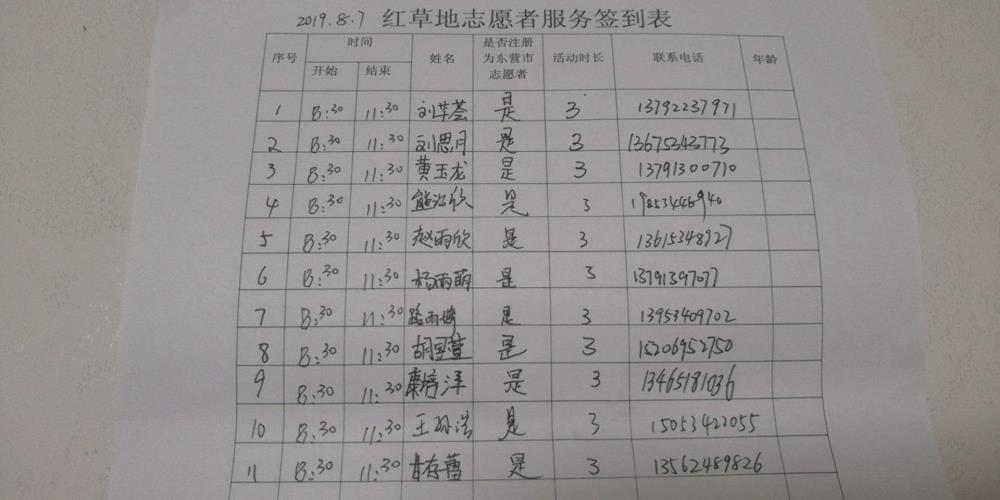 2019.8.7 红草地志愿者服务签到表
序号 时间 姓名 是否注册为东营市志愿者 活动时长 联系电话 年龄
开始 结束
1 8:30 11:30 刘苹荟 是 3 13792237971
2 8:30 11:30 刘思月 是 3 13675343773
3 8:30 11:30 黄玉龙 是 3 13791300710
4 8:30 11:30 熊治欣 是 3
5 8:30 11:30 赵雨欣 是 3 13615348927
6 8:30 11:30 杨雨萌 是 3 13791397077
7 8:30 11:30 路雨 是 3 13953409702
8 8:30 11:30 胡 是 3 15206952750
9 8:30 11:30 洋 是 3 13465181036
10 8:30 11:30 王孙浩 是 3 15053422055
11 8:30 11:30 甘存蕾 是 3 13562489826